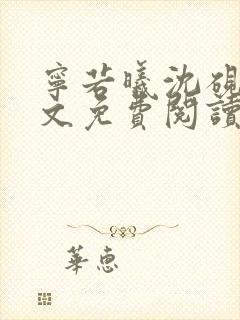 寧若曦沈硯
文免費閱讀
華惠